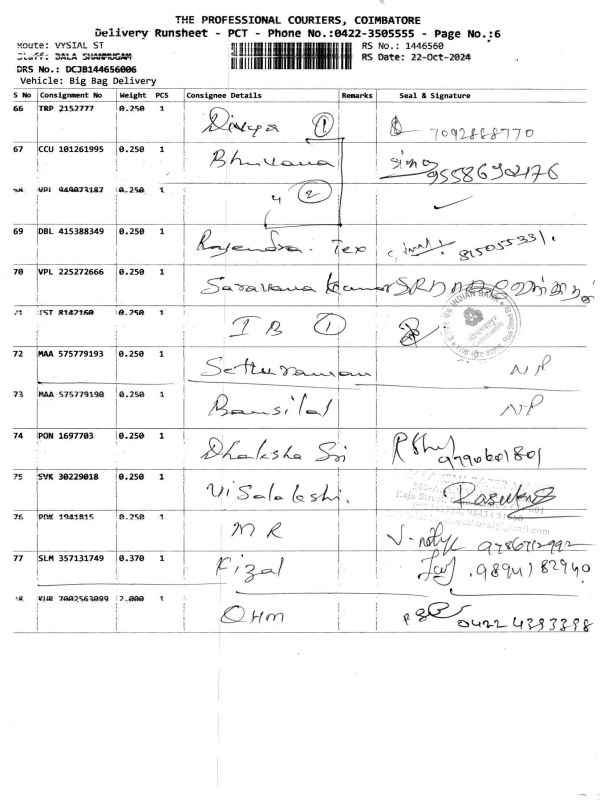 THE PROFESSIONAL COURIERS, COIMBATORE
Delivery Runsheet - PCT - Phone No.:0422-3505555 - Page No.:6
Route: VYSIAL ST RS No.: 1446560
Staff: BALA SHANMUGAM RS Date: 22-Oct-2024
DRS No.: DCJB144656006
Vehicle: Big Bag Delivery
S No Consignment No Weight PCS Consignee Details Remarks Seal & Signature
66 TRP 2152777 0.250 1 Divya 1 7092888770
67 CCU 101261995 0.250 1 Bhuvana 95586902176
68 VPL 949073187 0.250 1 4 2
69 DBL 415388349 0.250 1 Rajendra. Tex
70 VPL 225272666 0.250 1 Saravana Kumar
71 TST 8142160 0.250 1 I B 1 INDIAN BANK
72 MAA 575779193 0.250 1 Sethuraman NP
73 MAA 575779190 0.250 1 Bansilal NP
74 PON 1697703 0.250 1 Dhaksha Sri 9790601801
75 SVK 30229018 0.250 1 Visalakshi.
76 PDK 1941815 0.250 1 M R 9786712992
77 SLM 357131749 0.370 1 Fizal 9894182940
78 KUR 7002563099 2.000 1 OHM 0422 4393398